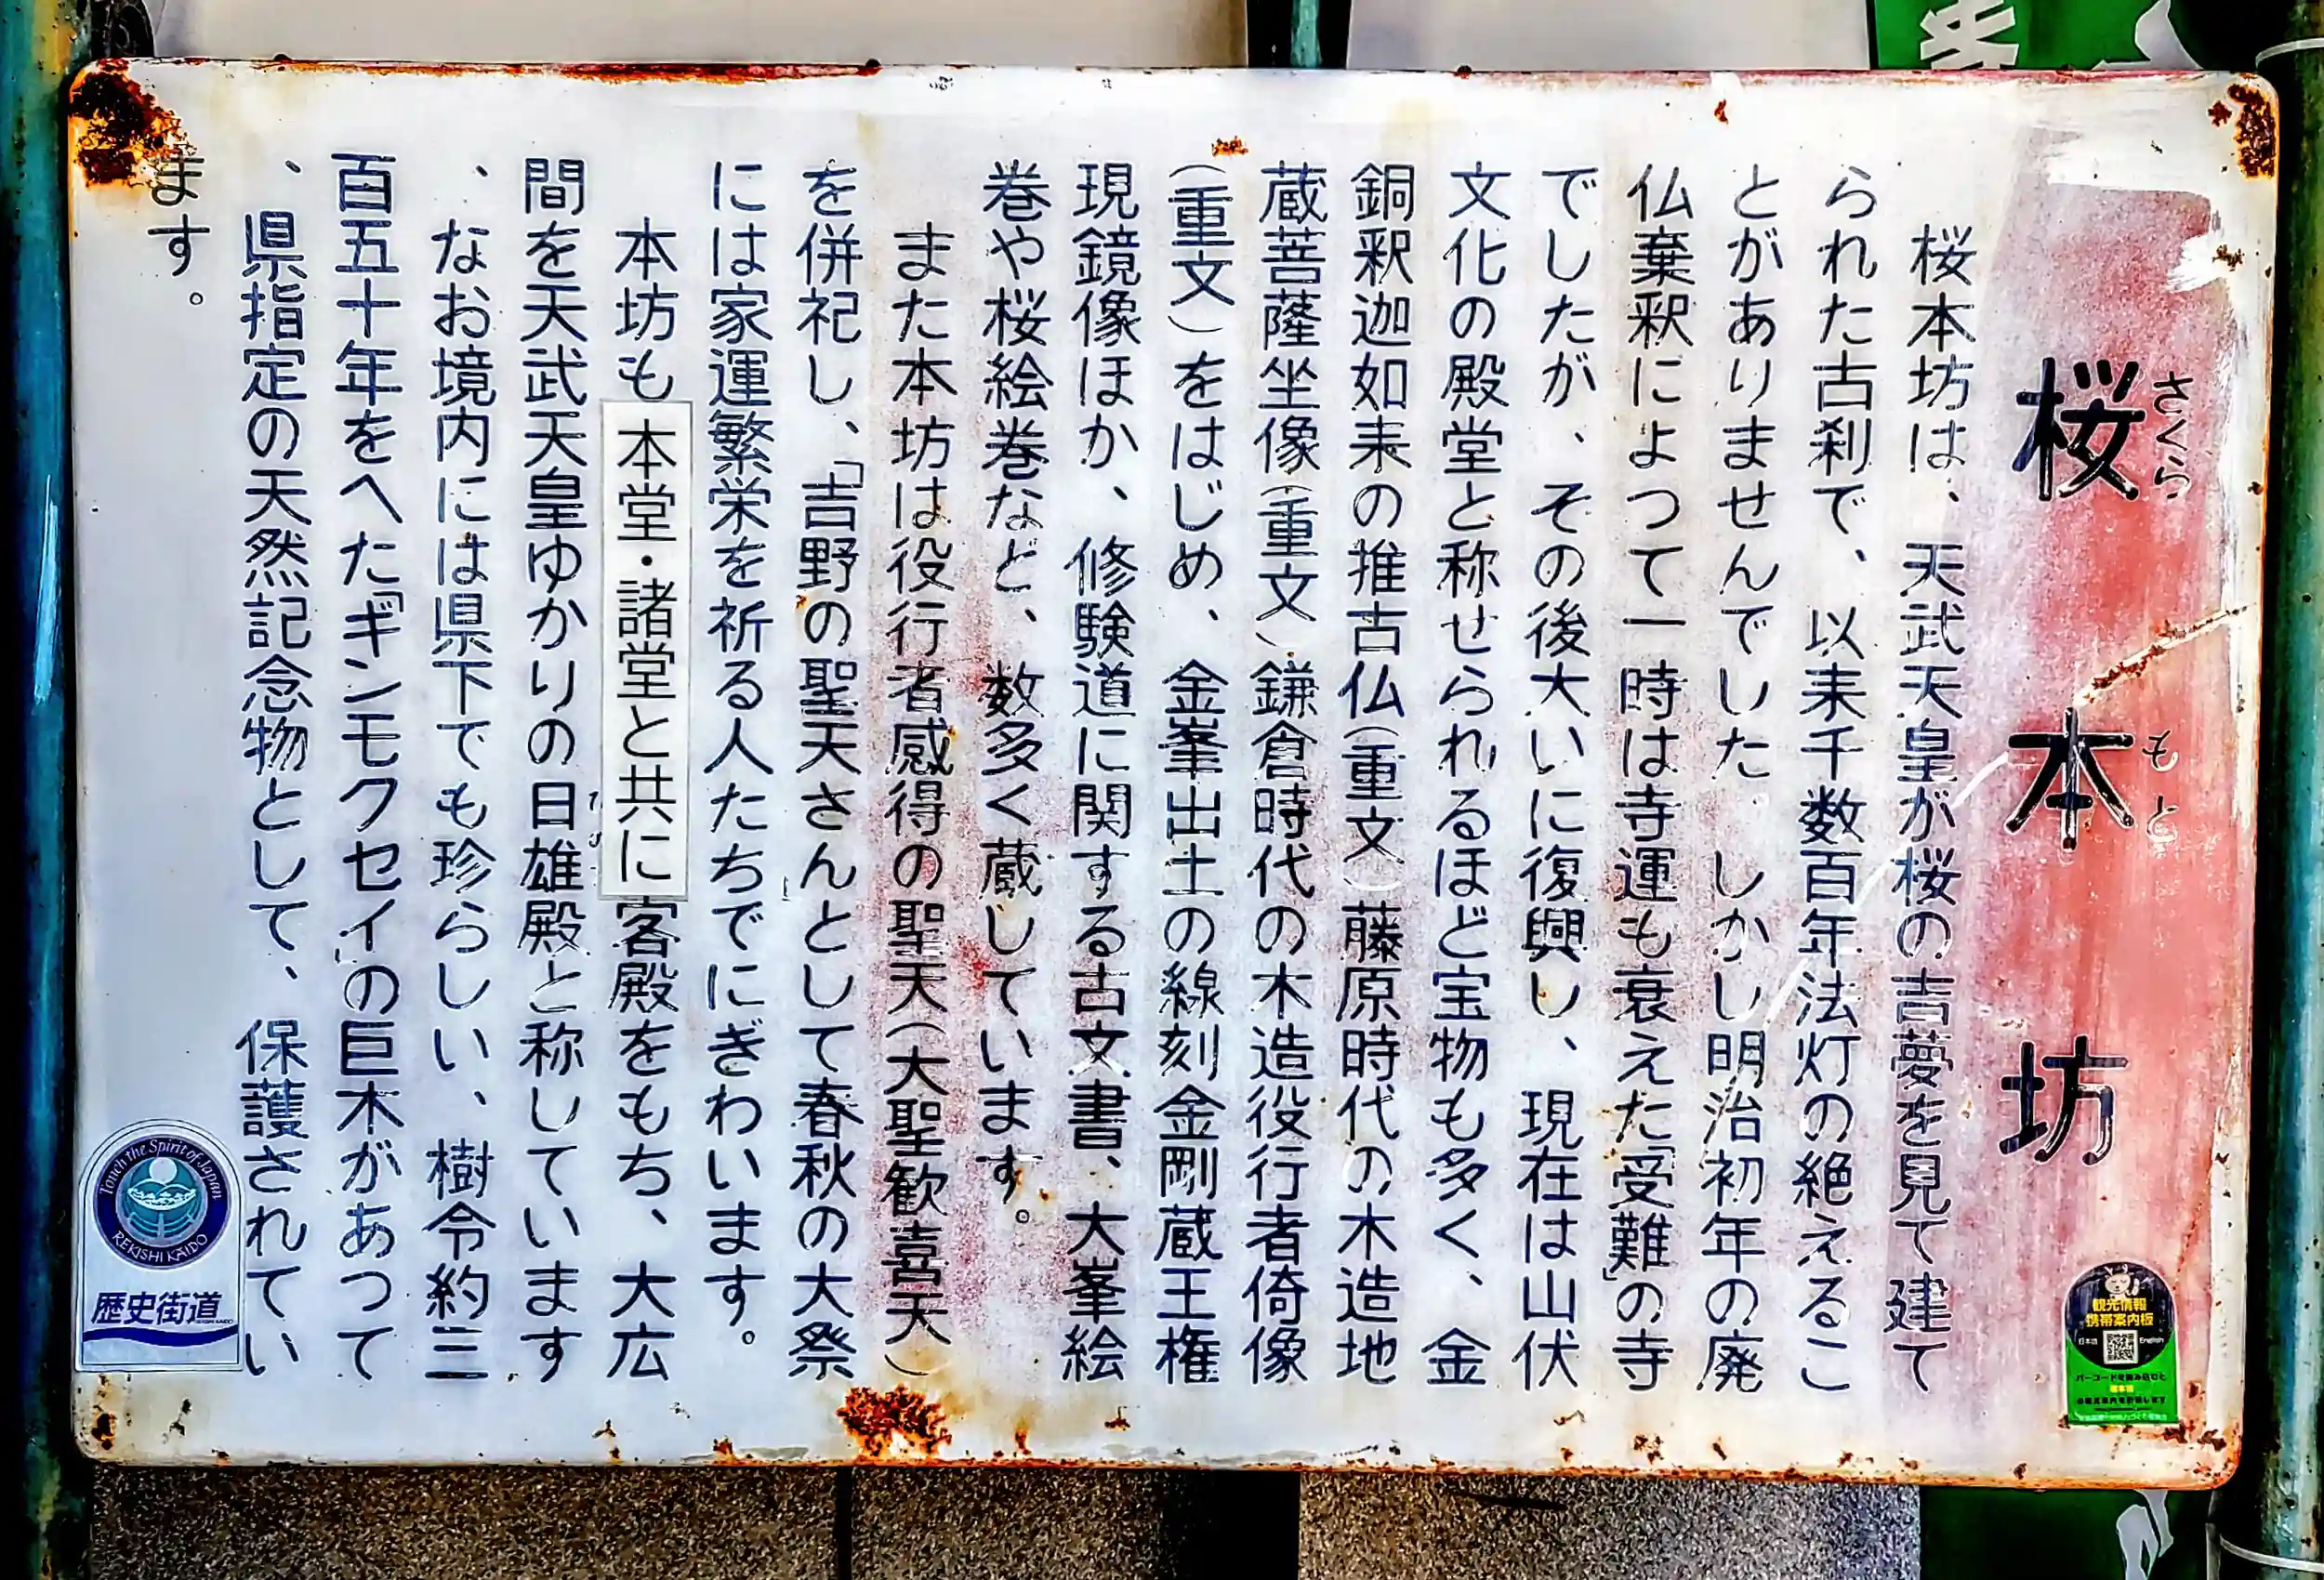 桜本坊
さくら
もと
桜本坊は、天武天皇が桜の吉夢を見て建て
られた古刹で、以来千数百年法灯の絶えるこ
とがありませんでした。しかし明治初年の廃
仏棄釈によって一時は寺運も衰えた「受難」の寺
でしたが、その後大いに復興し、現在は山伏
文化の殿堂と称せられるほど宝物も多く、金
銅釈迦如来の推古仏（重文）藤原時代の木造地
蔵菩薩坐像（重文）鎌倉時代の木造役行者倚像
（重文）をはじめ、金峯出土の線刻金剛蔵王権
現鏡像ほか、修験道に関する古文書、大峯絵
巻や桜絵巻など、数多く蔵しています。
また本坊は役行者感得の聖天（大聖歓喜天）
を併祀し、「吉野の聖天さんとして春秋の大祭
には家運繁栄を祈る人たちでにぎわいます。
本坊も本堂・諸堂と共に客殿をもち、大広
間を天武天皇ゆかりの日雄殿と称しています
、なお境内には県下でも珍らしい、樹令約三
百五十年をへた「ギンモクセイ」の巨木があって
、県指定の天然記念物として、保護されてい
ます。
Touch the Spirit of Japan
REKISHI KAIDO
歴史街道
観光情報
携帯案内板
日本語
English